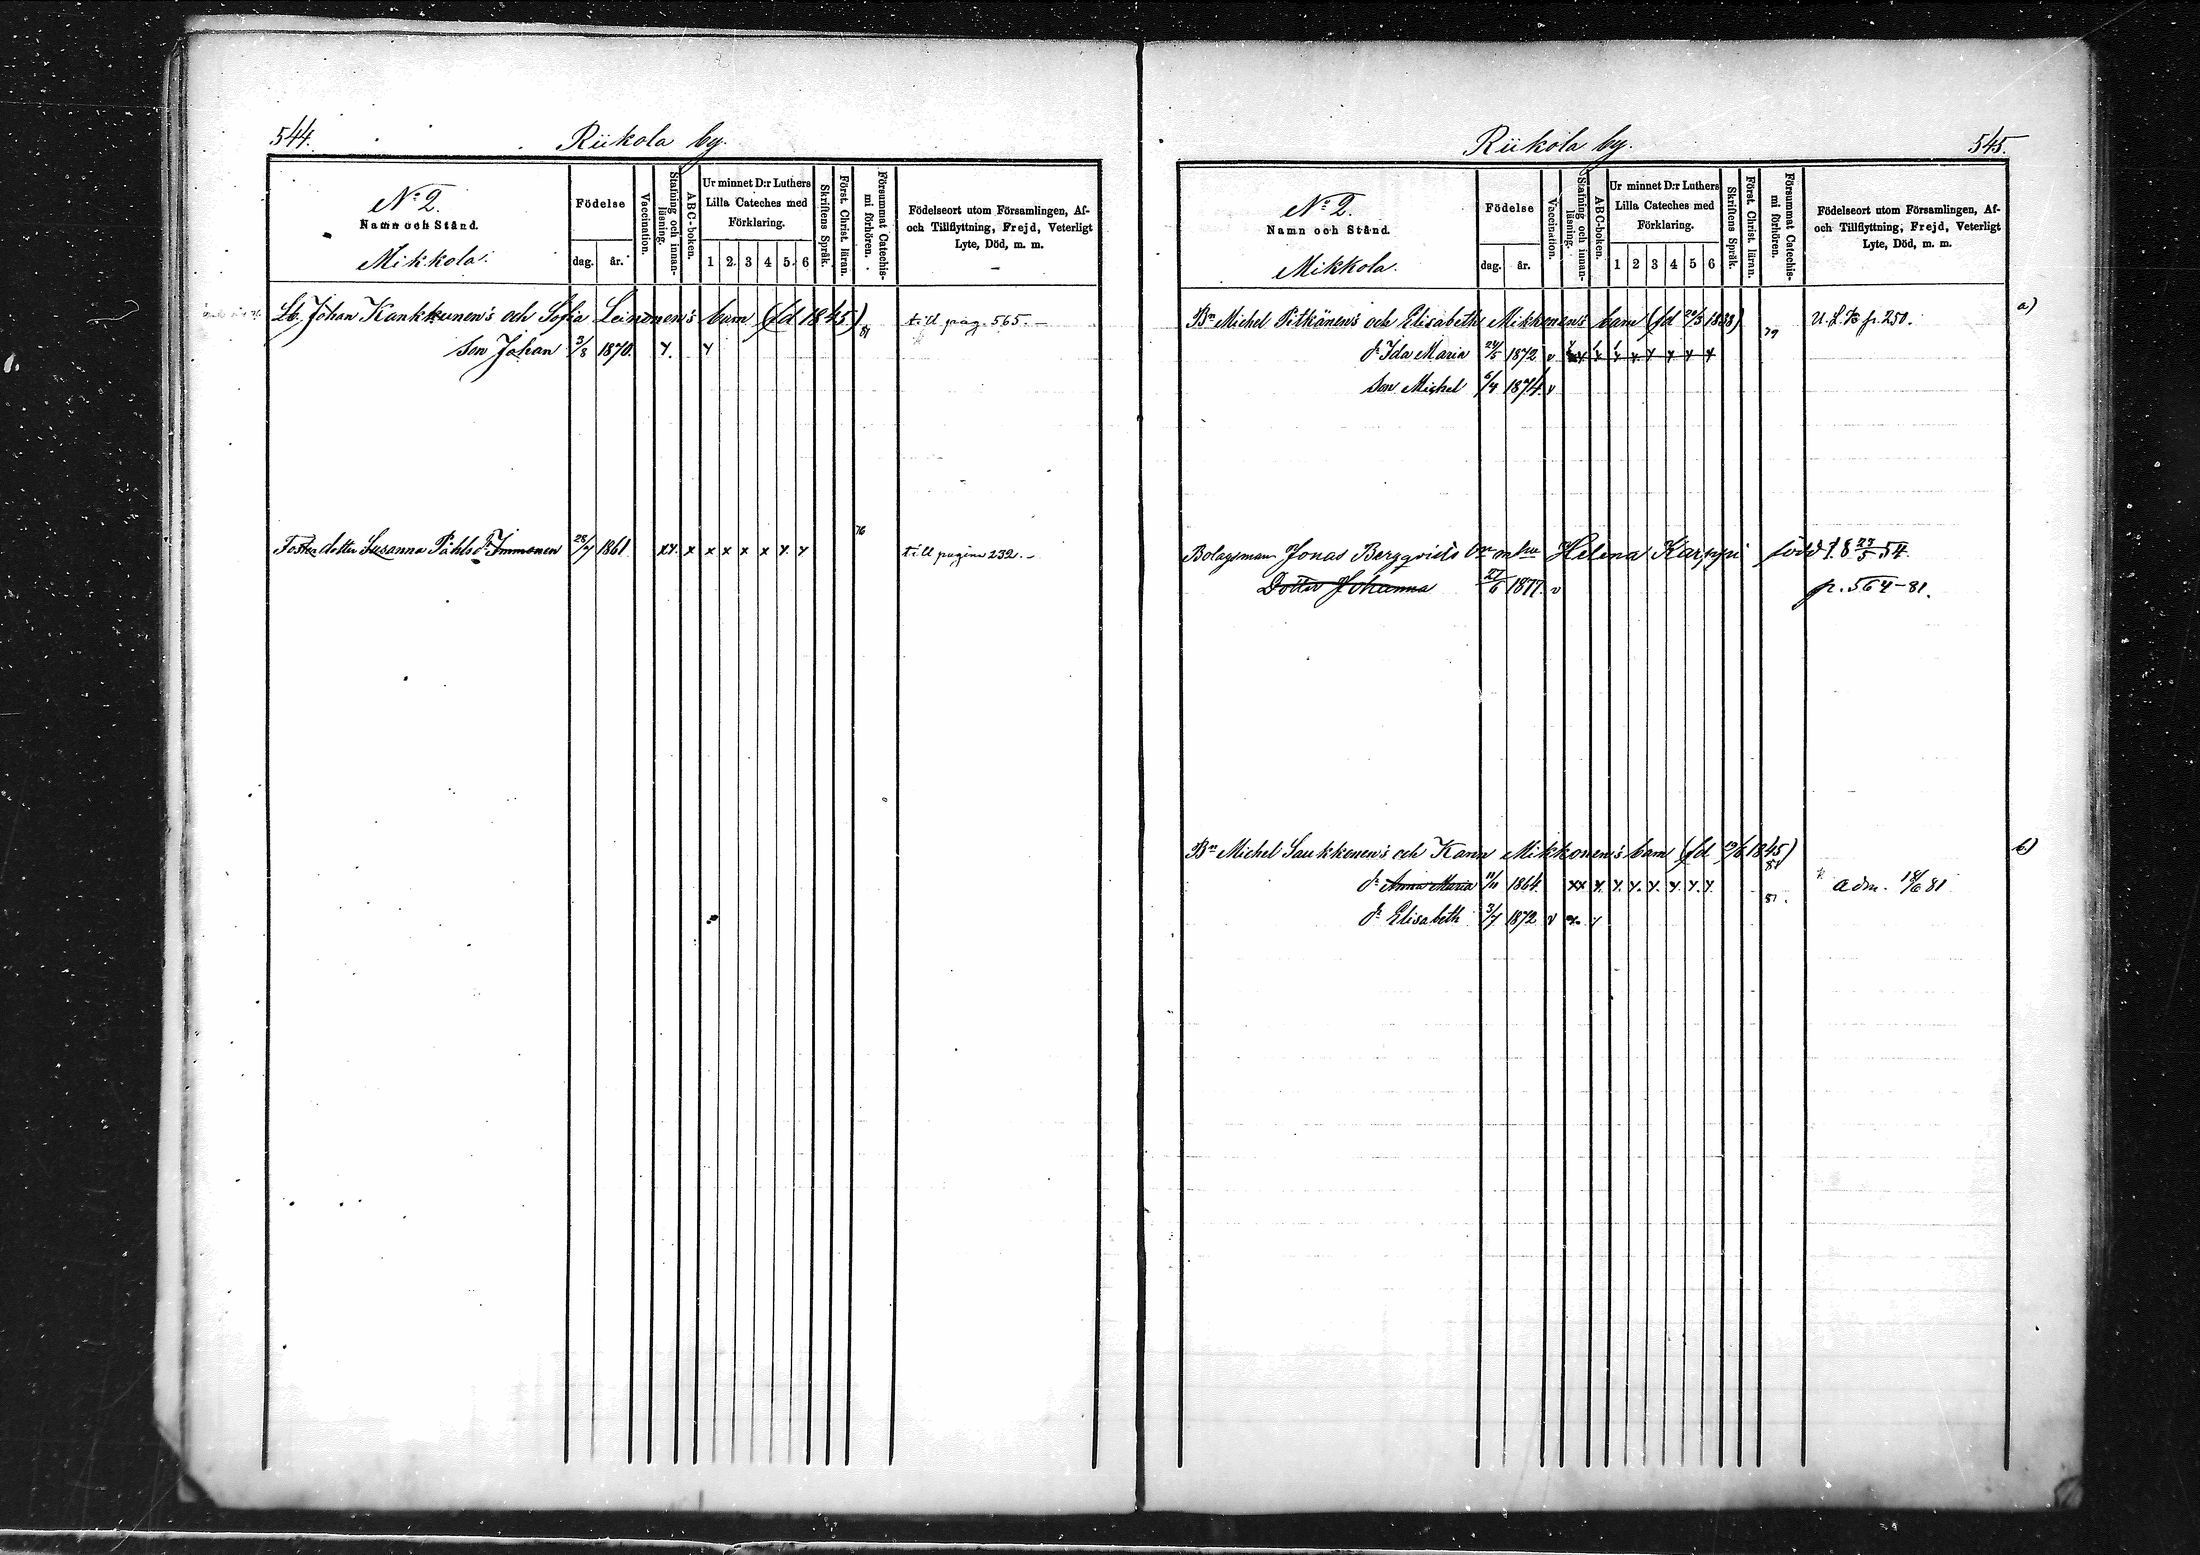 544.
Riikola by.
No 2.
Namn och Stånd.
Mikkola.
Födelse
dag.
år.
Vaccination.
Stafning och innan-
läsning.
ABC-boken.
Ur minnet D:r Luthers
Lilla Cateches med
Förklaring.
1 2 3 4 5 6
Skriftens Språk.
Först. Christ. läran.
Försummat Catechis-
mi förhören.
Födelseort utom Församlingen, Af-
och Tillflyttning, Frejd, Veterligt
Lyte, Död, m. m.
Lb. Johan Kankkunen's och Sofia Leinonen's barn (fd 1845) 81 till pag. 565.
Son Johan 3/8 1870.
Foster dotter Susanna Påhlsdr Immonen 28/7 1861 76 till pagina 232.
Riikola by.
545.
No 2.
Namn och Stånd.
Mikkola.
Födelse
dag.
år.
Vaccination.
Stafning och innan-
läsning.
ABC-boken.
Ur minnet D:r Luthers
Lilla Cateches med
Förklaring.
1 2 3 4 5 6
Skriftens Språk.
Först. Christ. läran.
Försummat Catechis-
mi förhören.
Födelseort utom Församlingen, Af-
och Tillflyttning, Frejd, Veterligt
Lyte, Död, m. m.
Bn Michel Pitkänen's och Elisabeth Mikkonen's barn (fd 29/3 1838) 79 p. 250. a)
dr Ida Maria 24/5 1872 v
Son Michel 6/4 1874. v
Bolagsman Jonas Bergqvists Helena Karppi född 18 23/5 54.
Dotter Johanna 27/6 1877. v p. 564-81.
Bn Michel Saukkonen's och Karin Mikkonen's barn (fd 1845) 81 b)
dr Anna Maria 11/11 1864 xx adm. 18/6 81
dr Elisabeth 3/7 1872 v 81.